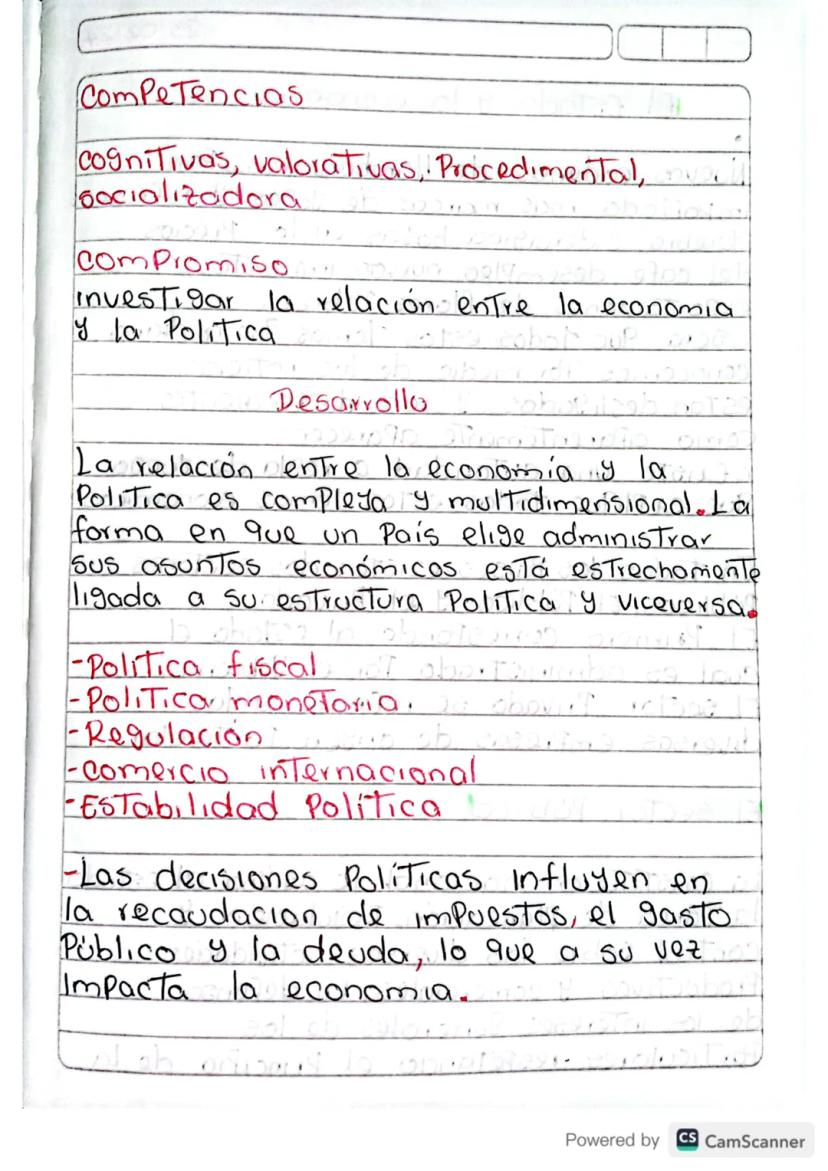 Competencias
cognitivas, valorativas, Procedimental,
socializadora
compromiso
investigar la relación entre la economia
y la Politica
Desarrollo
La relación entre la economía y la
Politica es compleja y multidimensional. La
forma en que un País elige administrar
sus asuntos económicos está estrechamente
ligada a su estructura Politica y viceversa.
-Politica fiscal
-Politica monetaria.
-Regulación
-comercio internacional
-Estabilidad Politica
-Las decisiones Políticas influyen en
la recaudacion de impuestos, el gasto
Público y la deuda, lo que a su vez
impacta la economia.
Powered by CS CamScanner